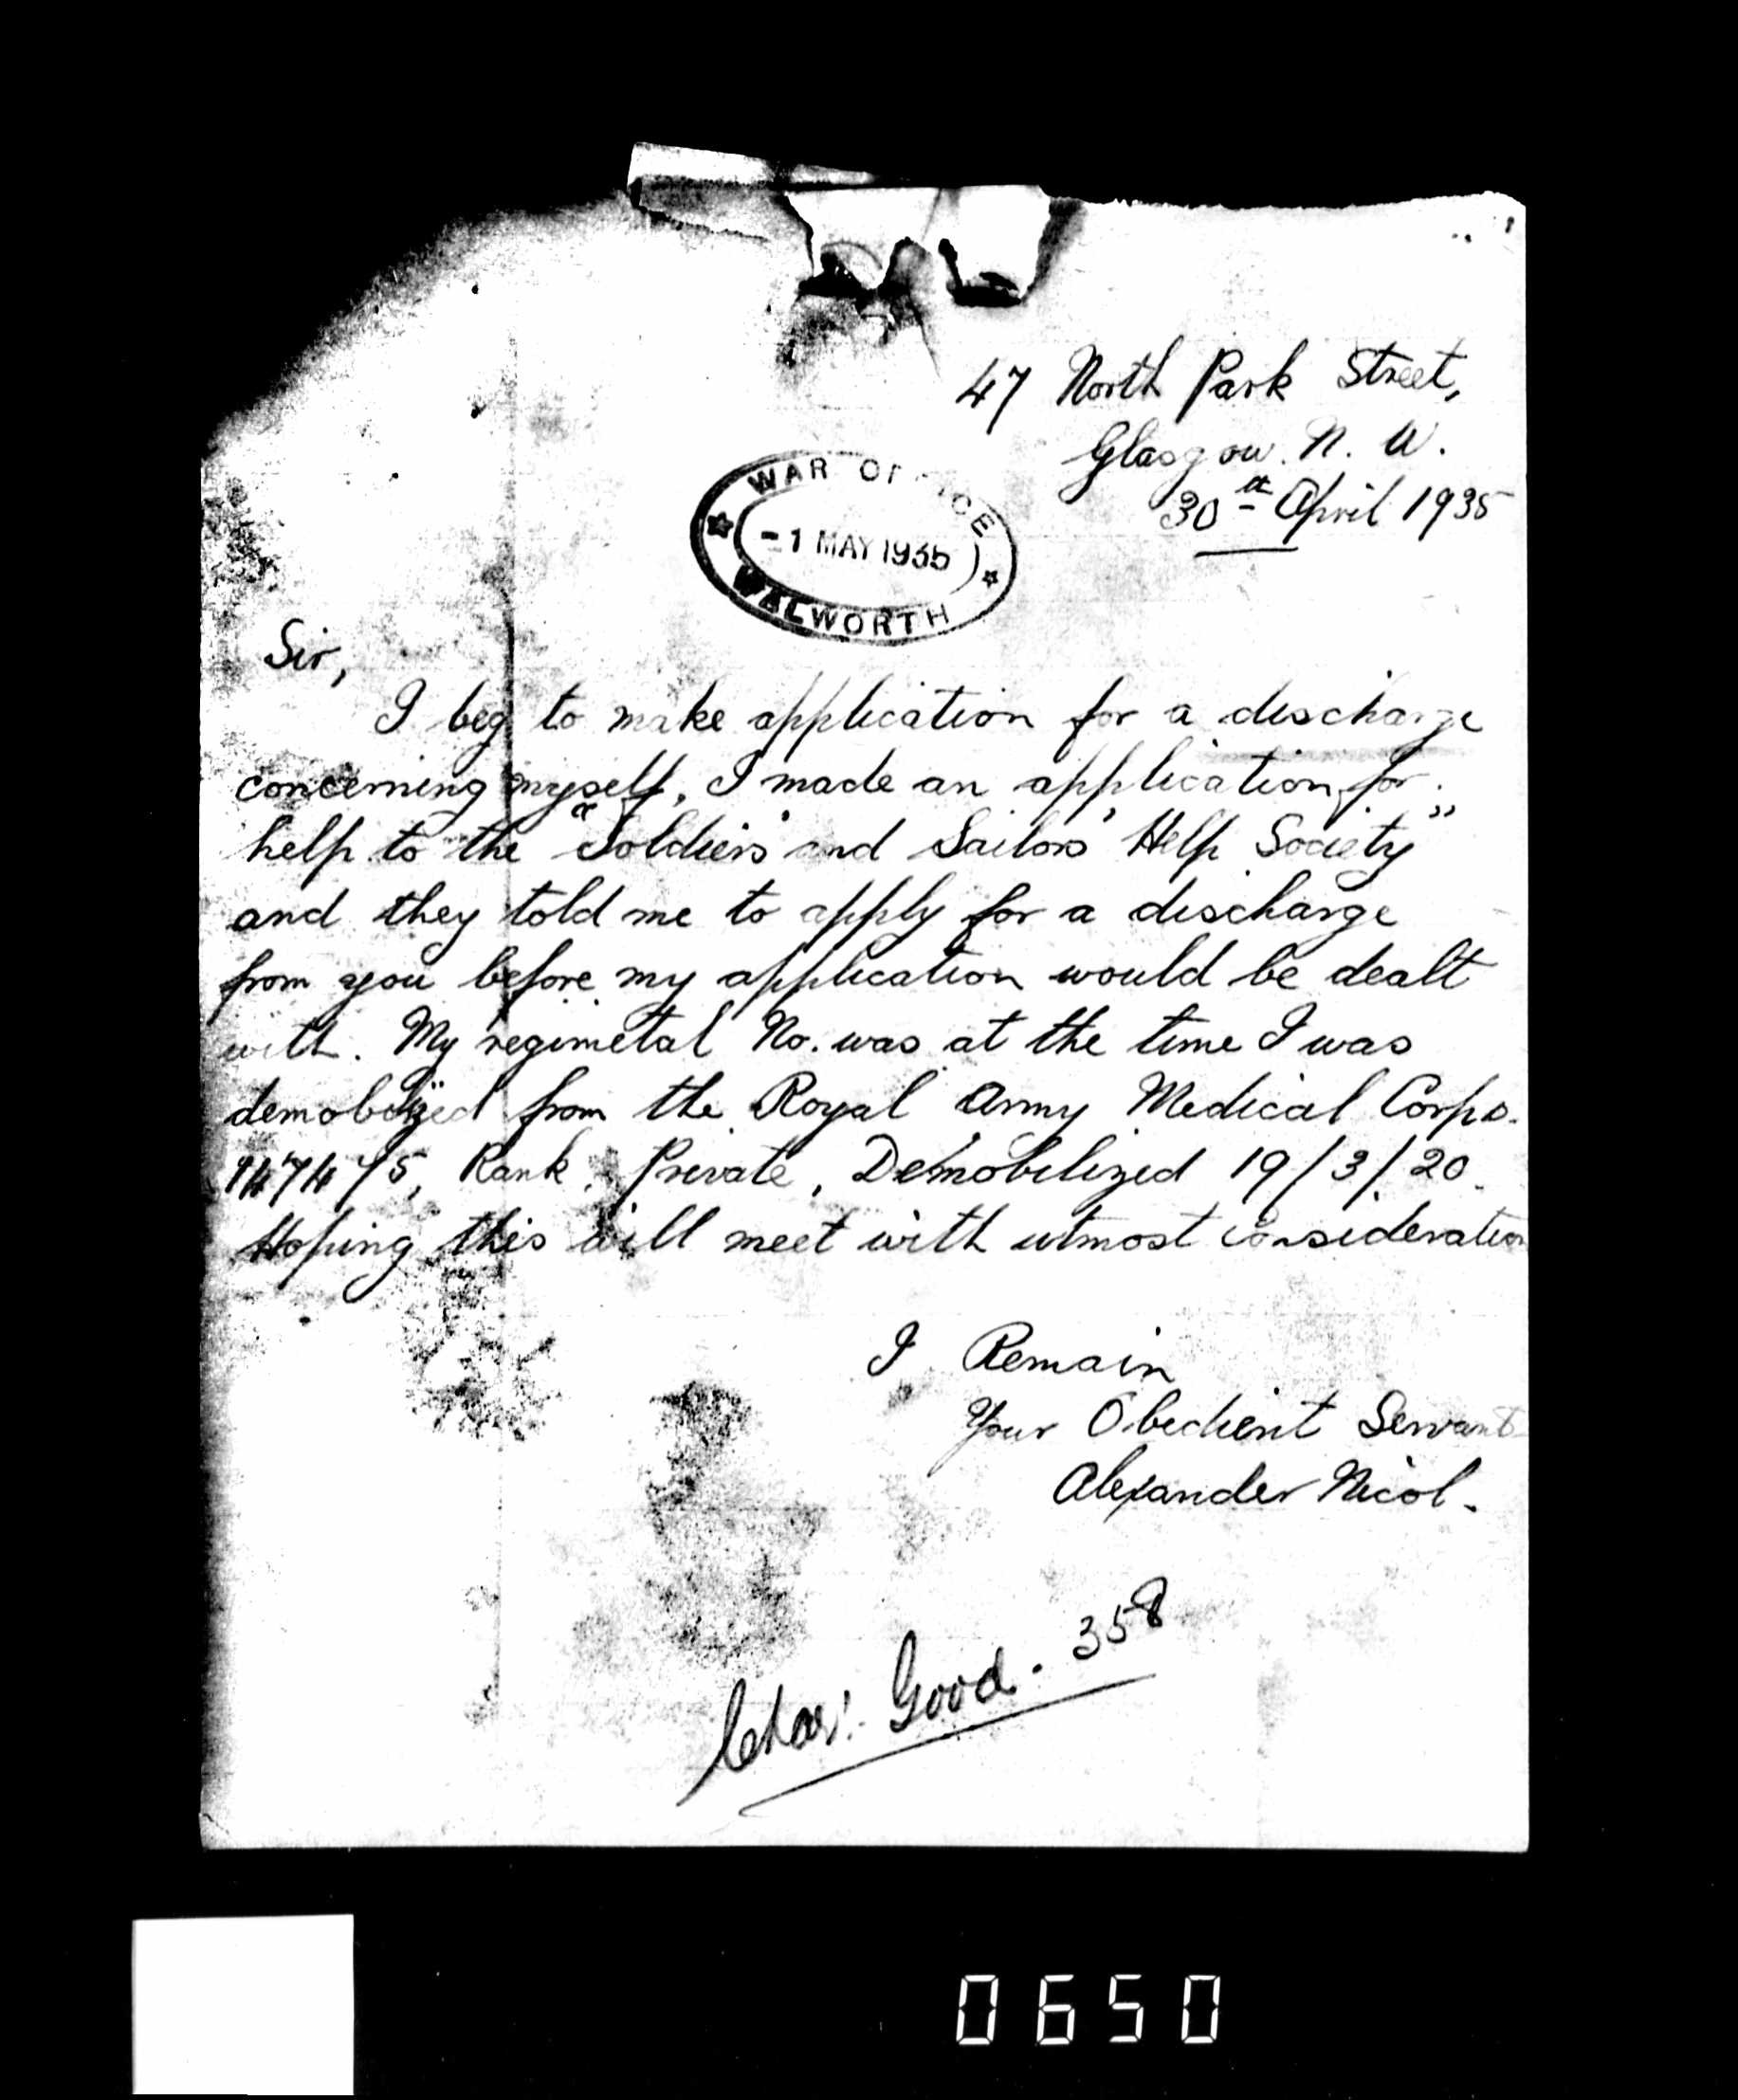 47 North Park Street,
Glasgow. N. W.
30th April 1935
WAR OFFICE
-1 MAY 1935
WALWORTH
Sir,
I beg to make application for a discharge
concerning myself, I made an application for
help to the "Soldiers' and Sailors' Help Society"
and they told me to apply for a discharge
from you before my application would be dealt
with. My regimetal No. was at the time I was
demobilized from the Royal Army Medical Corps.
Rank, Private, Demobilized 19/3/20.
Hoping this will meet with utmost consideration
I Remain
Your Obedient Servant
Alexander Nicol.
Char: Good. 358
0650